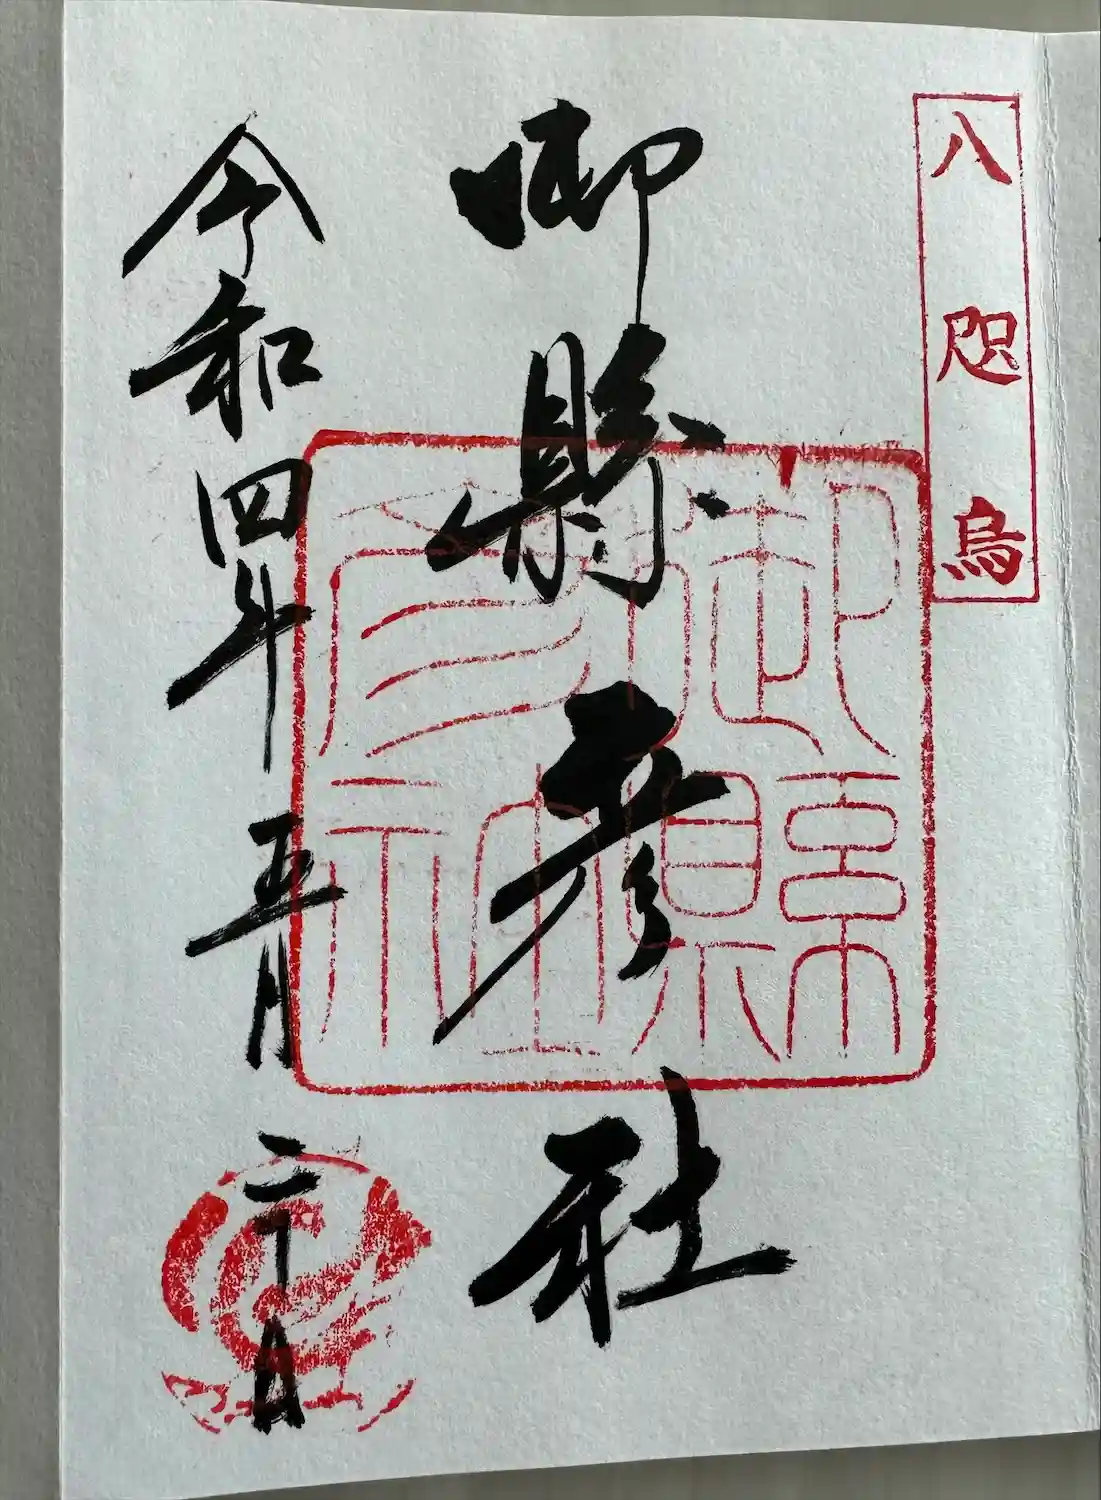 八咫烏
御縣彦社
御縣
彦社
令和四年五月二十日